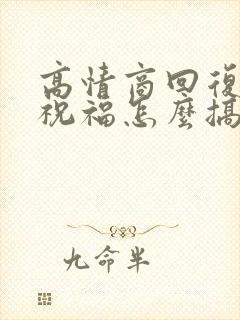 高情商回復
祝福怎麼搞
九命半